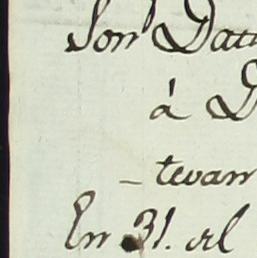 Son Datt
á D
- tevan
En 31. al